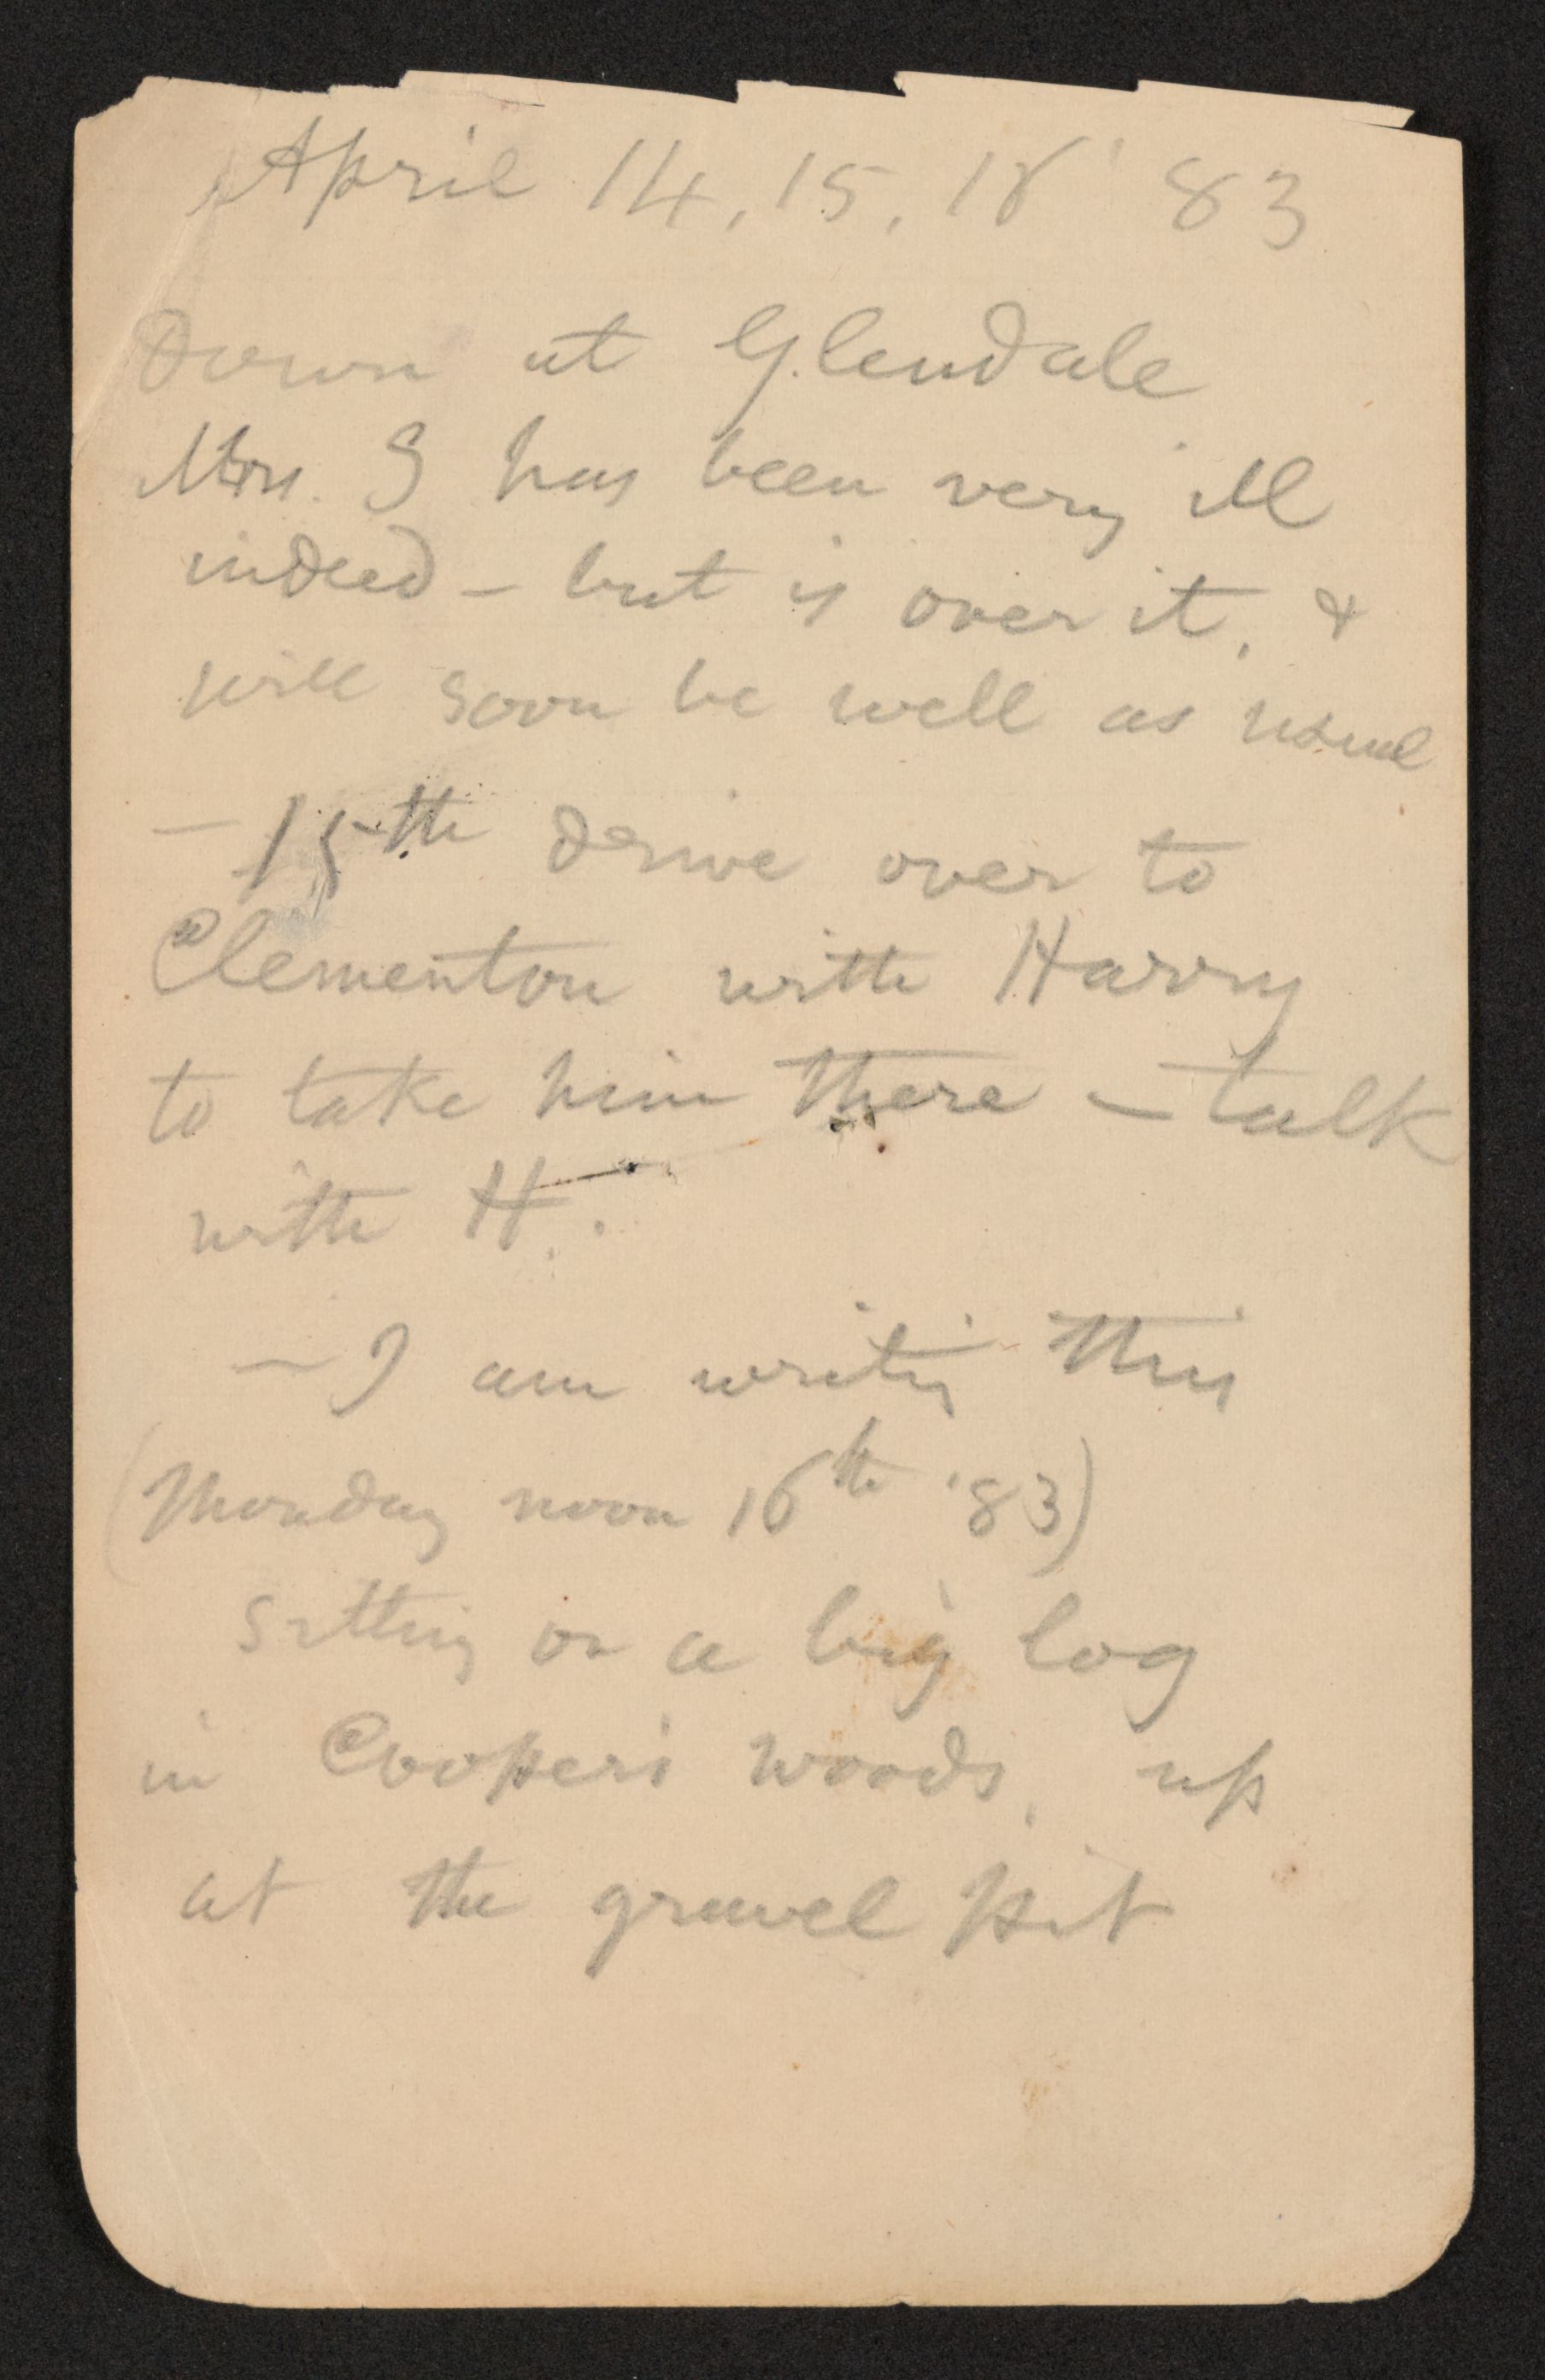 April 14, 15, 16 '83
Down at Glendale
Mrs. S has been very ill
indeed – but is over it, &
will soon be well as usual
– 15th drive over to
Clementon with Harry
to take him there – talk
with H.
– I am writing this
(Monday noon 16th '83)
sitting on a big log
in Cooper's woods, up
at the gravel pit